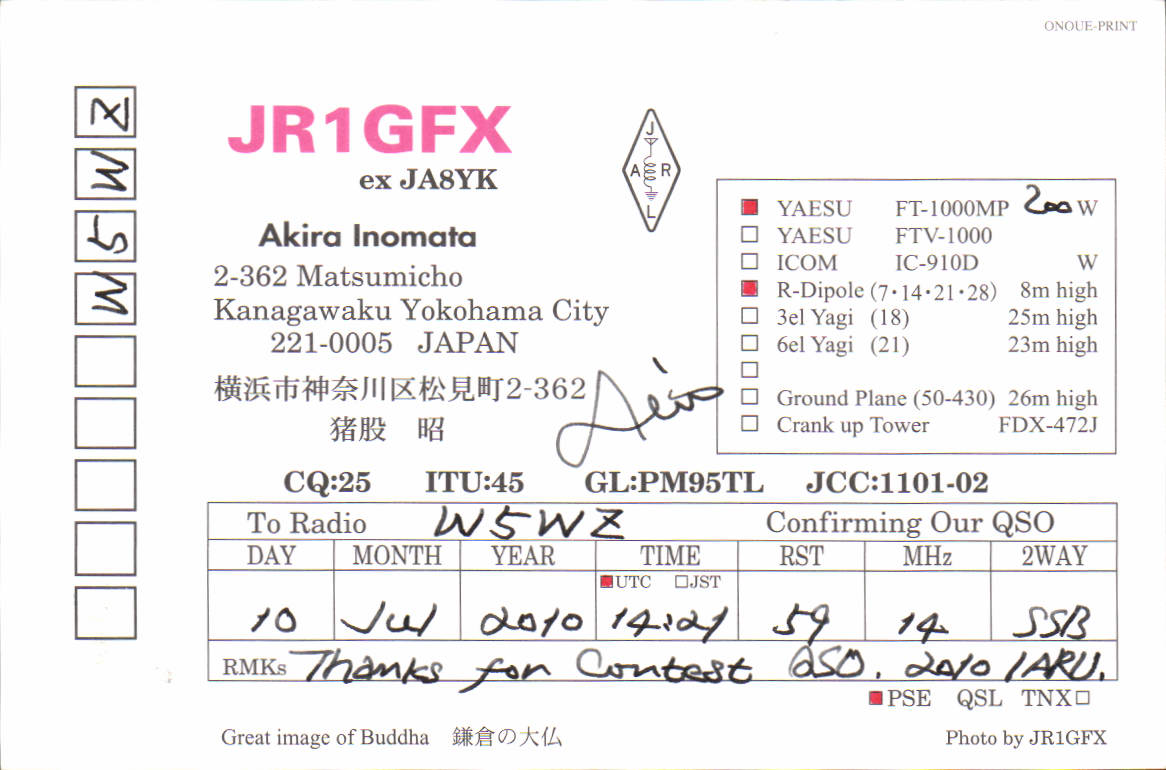 ONOUE-PRINT
W5WZ
JR1GFX
ex JA8YK
JARL
Akira Inomata
2-362 Matsumicho
Kanagawaku Yokohama City
221-0005 JAPAN
横浜市神奈川区松見町2-362
猪股 昭
YAESU FT-1000MP 200 W
YAESU FTV-1000
ICOM IC-910D W
R-Dipole (7・14・21・28) 8m high
3el Yagi (18) 25m high
6el Yagi (21) 23m high
Ground Plane (50-430) 26m high
Crank up Tower FDX-472J
CQ:25 ITU:45 GL:PM95TL JCC:1101-02
To Radio W5WZ Confirming Our QSO
DAY MONTH YEAR TIME RST MHz 2WAY
UTC JST
10 Jul 2010 14:21 59 14 SSB
RMKs Thanks for Contest QSO. 2010 IARU.
PSE QSL TNX
Great image of Buddha 鎌倉の大仏 Photo by JR1GFX